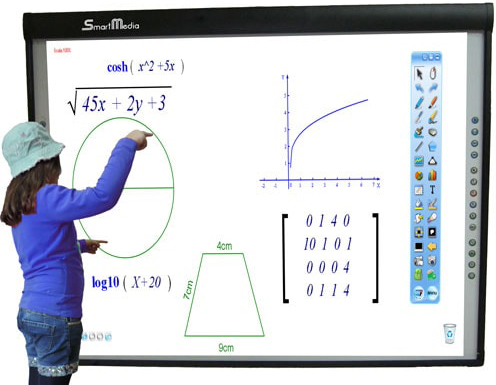 SmartMedia
cosh ( x^2 +5x )
√45x + 2y +3
Y
5
4
3
2
1
-2 -1 0 1 2 3 4 5 6 7 X
0 1 4 0
10 1 0 1
0 0 0 4
0 1 1 4
4cm
7cm
9cm
log10 ( X+20 )
T